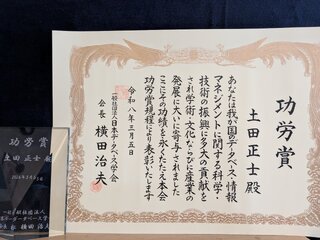 功労賞
土田正士殿
あなたは我が国のデータベース・情報
マネジメントに関する科学・
技術の振興に多大の貢献を
され学術・文化ならびに産業の
発展に大いに寄与されました
ここにその功績を永くたたえ本会
功労賞規程により表彰いたします
令和八年三月五日
一般社団法人日本データベース学会
会長 横田治夫
功労賞
土田 正士 殿
2026年3月5日
一般社団法人
日本データベース学会
横田 治夫